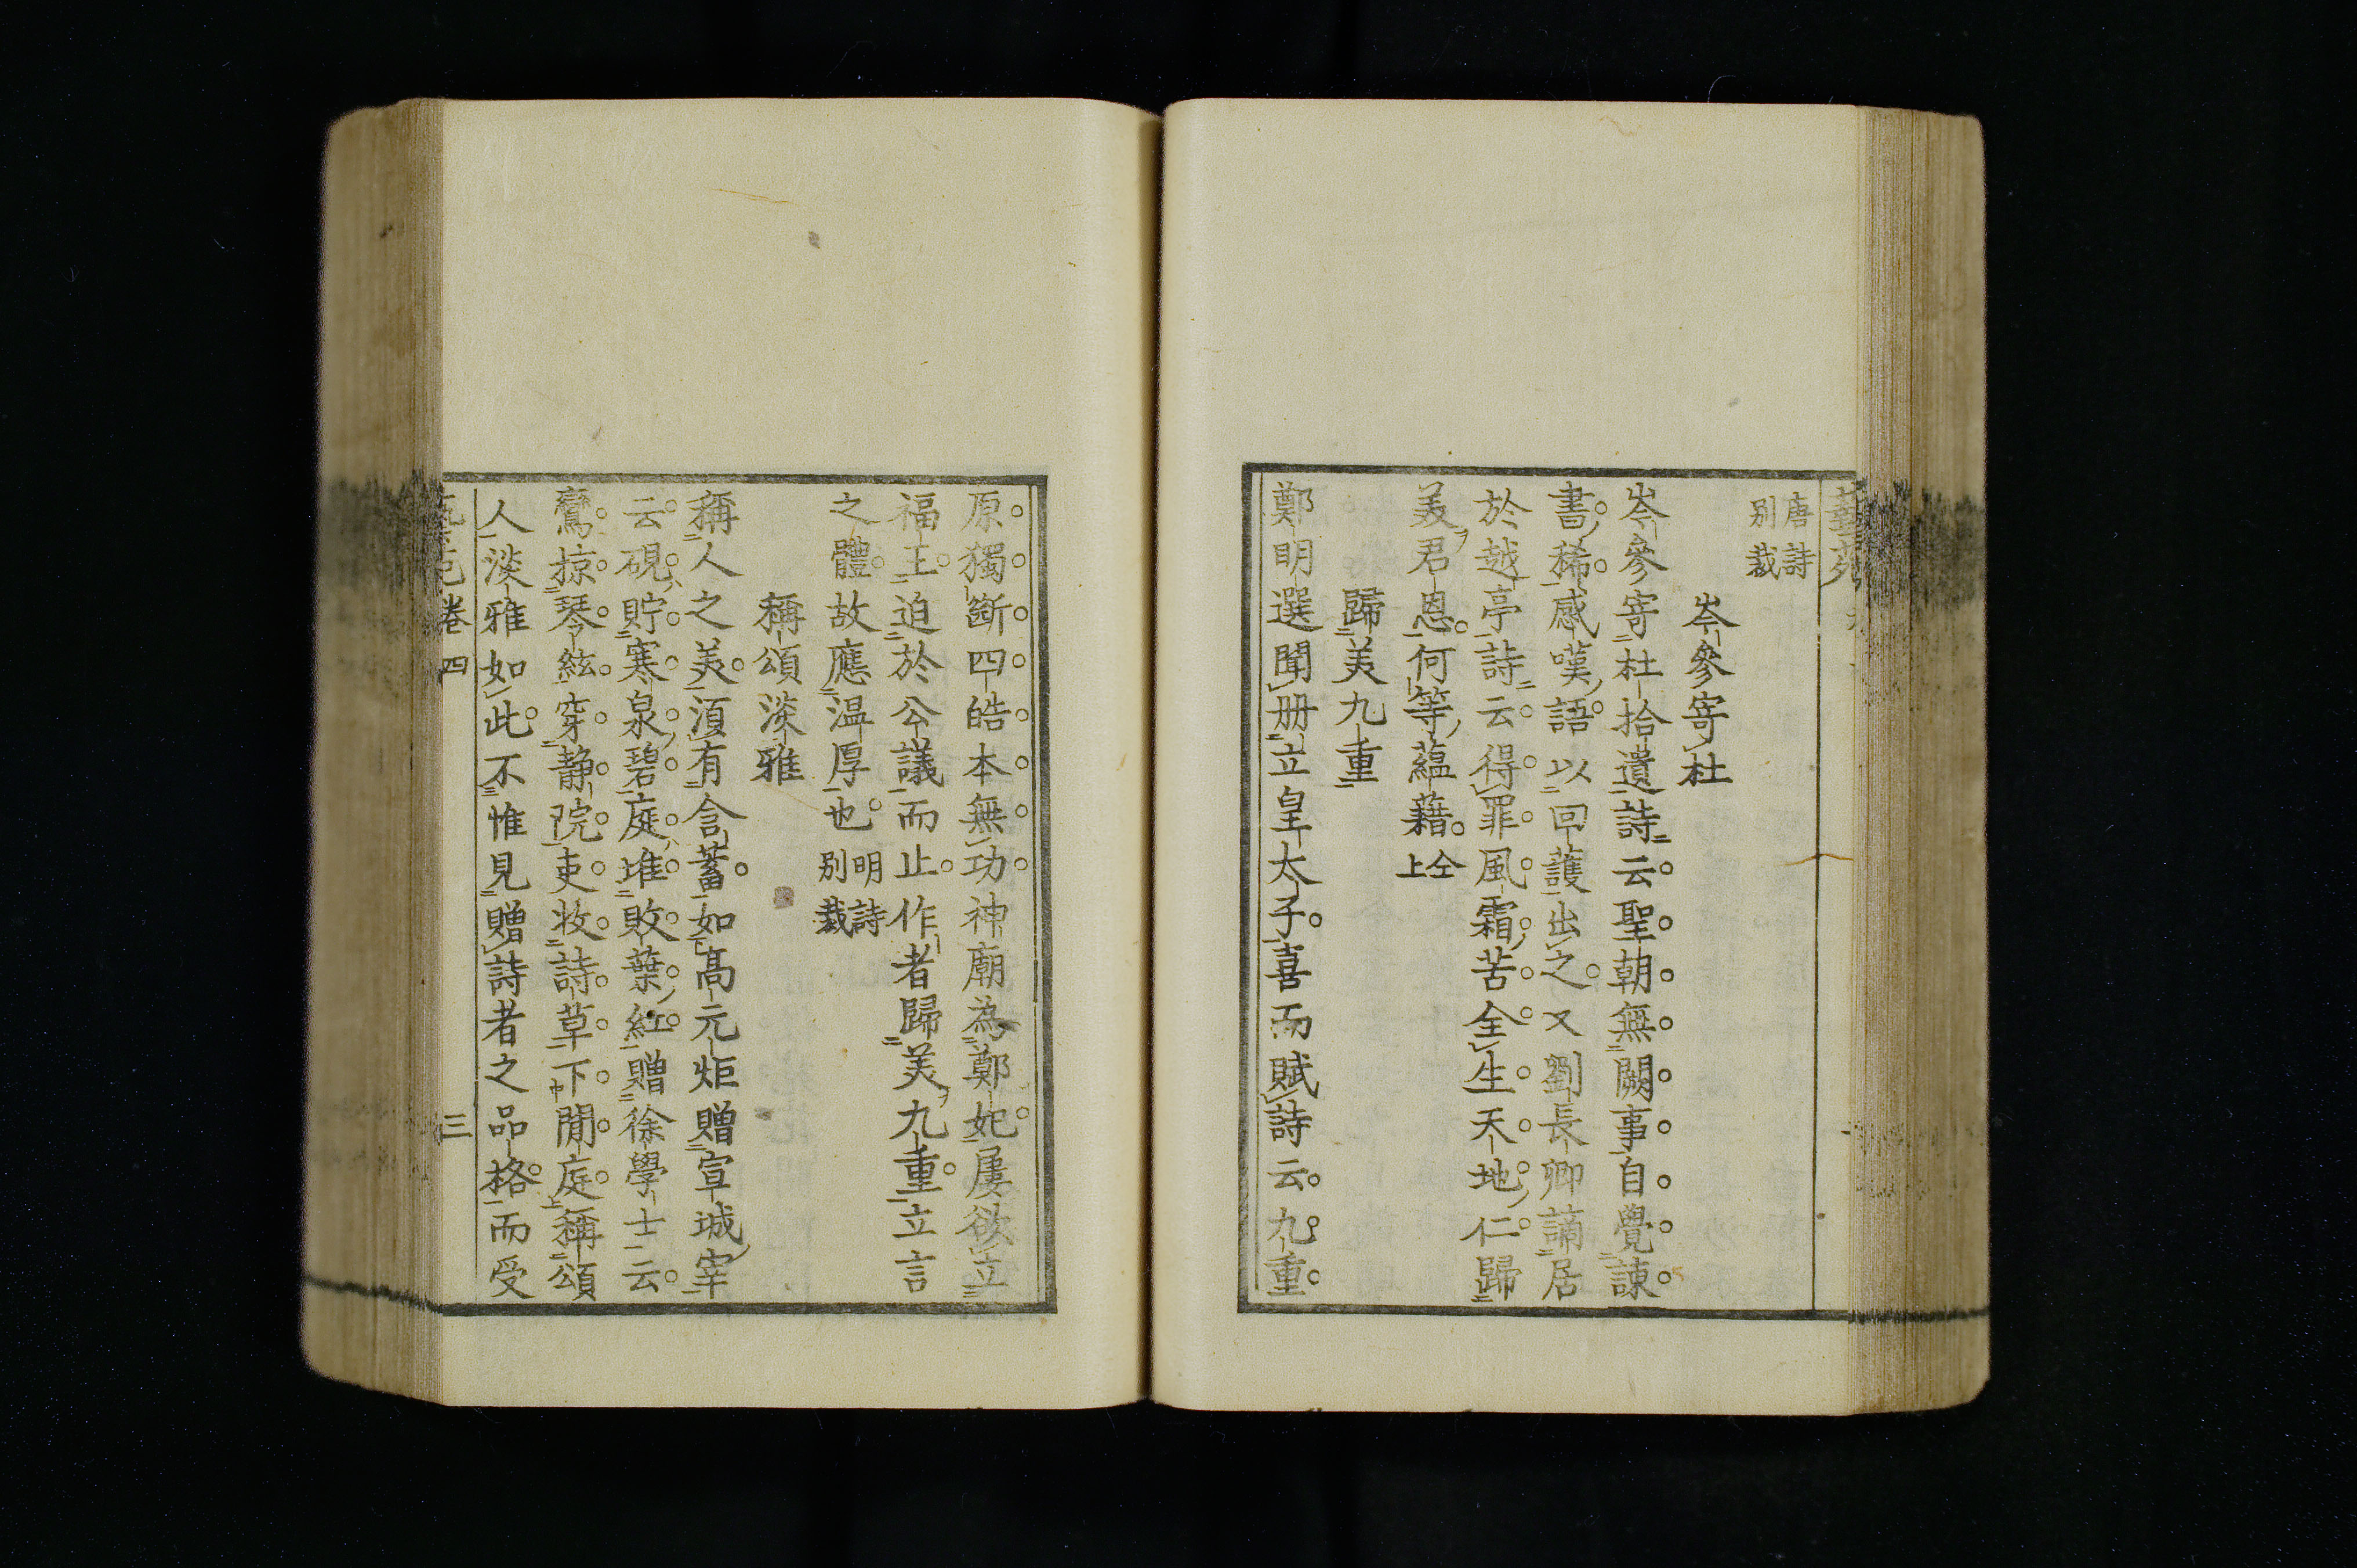 藝苑
唐詩
別裁
岑參寄杜
岑參寄杜拾遺詩云聖朝無闕事自覺諫
書稀感嘆語以回護出之又劉長卿謫居
於越亭詩云得罪風霜苦全生天地仁歸
美君恩何等蘊藉仝上
歸美九重
鄭明選聞册立皇太子喜而賦詩云九重
原獨斷四皓本無功神廟為鄭妃屢欲立
福王迫於公議而止作者歸美九重立言
之體故應温厚也明詩
別裁
稱頌淡雅
稱人之美湏有含蓄如高元炬贈宣城宰
云硯貯寒泉碧庭堆敗葉紅贈徐學士云
鸞掠琴絃穿静院吏收詩草下閒庭稱頌
人淡雅如此不惟見贈詩者之品格而受
卷四 三